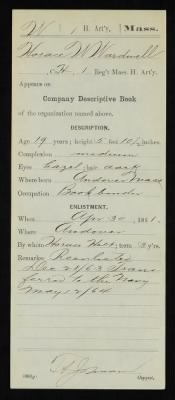 W | 1 | H. Art'y. | Mass.
Horace W Wardwell
Co. H, 1 Reg't Mass. H. Art'y.
Appears on
Company Descriptive Book
of the organization named above.
DESCRIPTION.
Age 19 years; height 5 feet 10½ inches.
Complexion medium
Eyes hazel; hair dark
Where born Andover Mass
Occupation Bookbinder
ENLISTMENT.
When Apr 30, 1861.
Where Andover
By whom Horace Holt; term 3 y'rs.
Remarks: Reenlisted
Dec 21/63 Trans
ferred to the Navy
May 12/64
Copyist.